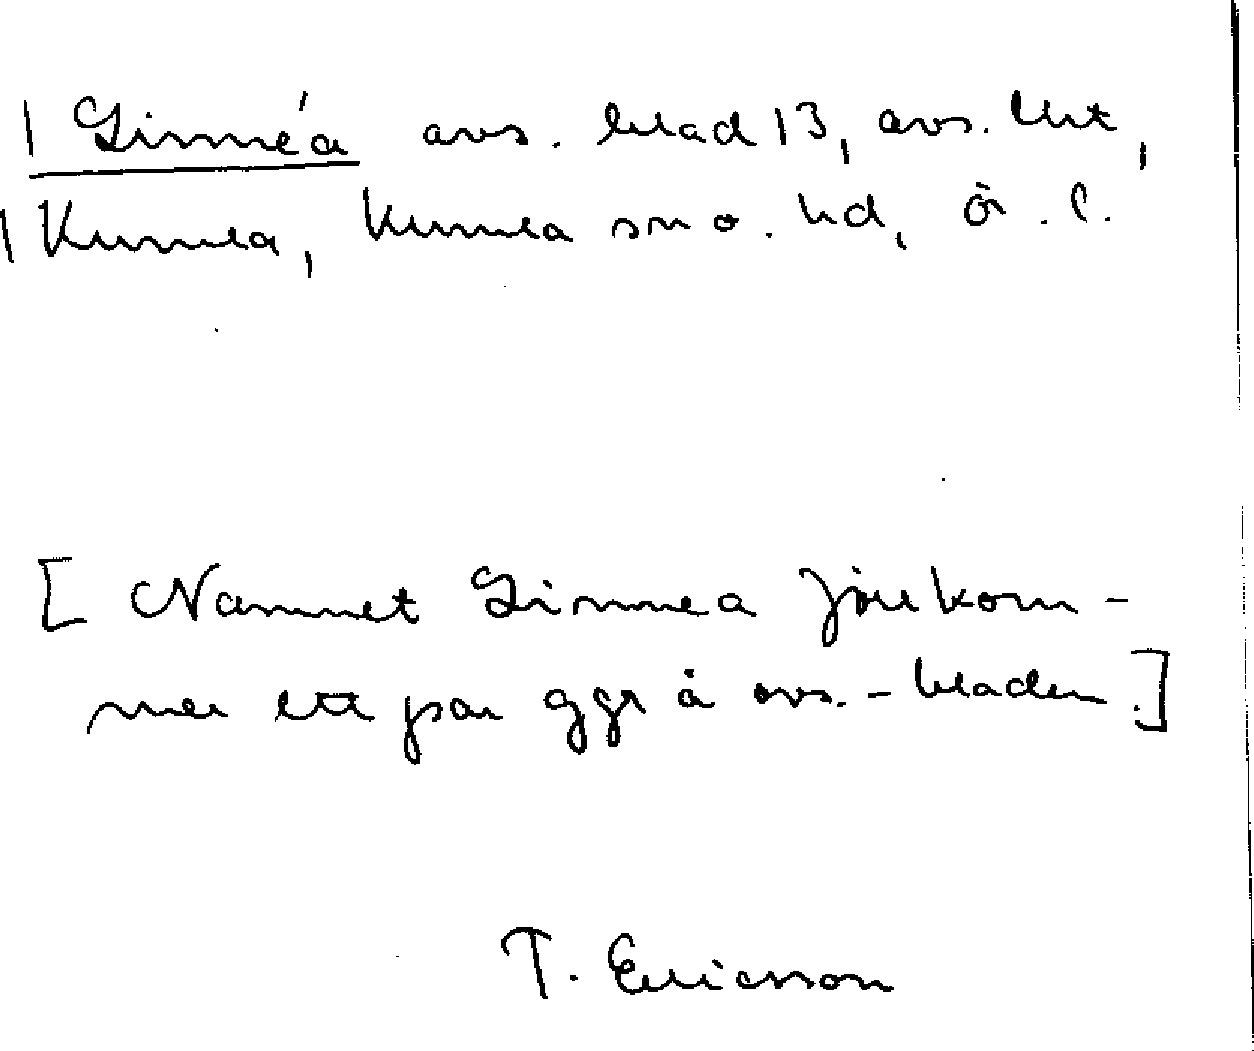 Linnéa avs. blad 13, avs. Ukt,
Kumla, Kumla sn o. hd, Ör. l.
[Namnet Linnea förekom-
mer ett par ggr å avs.-bladen.]
T. Ericsson